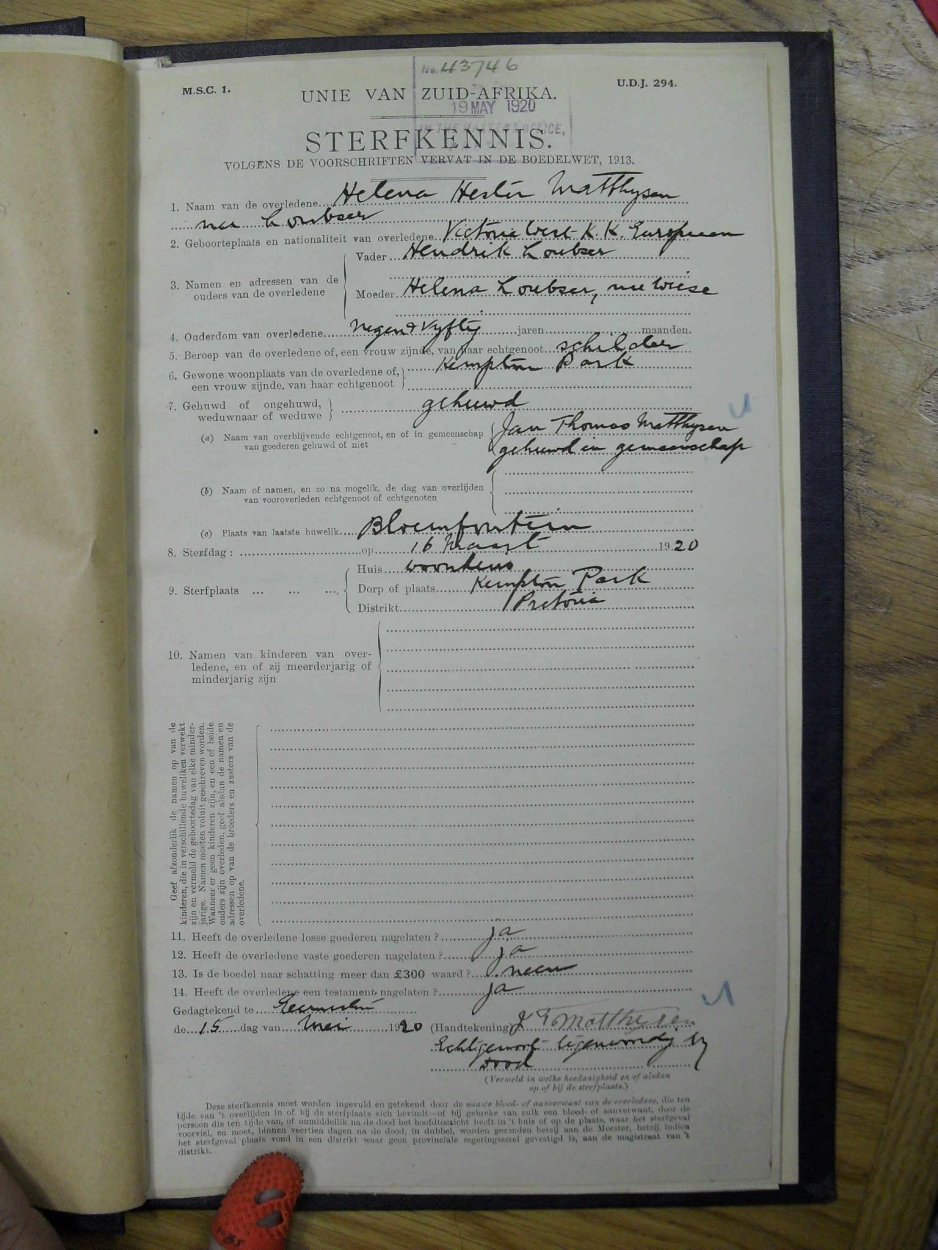 No. 43746
M.S.C. 1.
U.D.J. 294.
UNIE VAN ZUID-AFRIKA.
19 MAY 1920
IN THE MASTER'S OFFICE,
STERFKENNIS.
VOLGENS DE VOORSCHRIFTEN VERVAT IN DE BOEDELWET, 1913.
1. Naam van de overledene Helena Hester Matthysen
nee Loubser
2. Geboorteplaats en nationaliteit van overledene Victoria West K.K. Europeaan
3. Namen en adressen van de ouders van de overledene
Vader Hendrik Loubser
Moeder Helena Loubser, nee Wiese
4. Ouderdom van overledene Negen & Vyftig jaren maanden.
5. Beroep van de overledene of, een vrouw zijnde, van haar echtgenoot schilder
6. Gewone woonplaats van de overledene of, Kempton Park
een vrouw zijnde, van haar echtgenoot
7. Gehuwd of ongehuwd, gehuwd
weduwnaar of weduwe
(a) Naam van overblijvende echtgenoot, en of in gemeenschap Jan Thomas Matthysen
van goederen gehuwd of niet gehuwd in gemeenschap
(b) Naam of namen, en zo na mogelik, de dag van overlijden
van vooroverleden echtgenoot of echtgenoten
(c) Plaats van laatste huwelik Bloemfontein
8. Sterfdag : op 16 Maart 1920
9. Sterfplaats ... ... ...
Huis woonhuis
Dorp of plaats Kempton Park
Distrikt Pretoria
10. Namen van kinderen van over-
ledene, en of zij meerderjarig of
minderjarig zijn
Geef afzonderlik de namen op van de
kinderen, die in verschillende huweliken verwekt
zijn en vermeld de geboortedag van elke minder-
jarige. Namen moeten voluit geschreven worden.
Wanneer er geen kinderen zijn, en een of beide
ouders zijn overleden, geef alsdan de namen en
adressen op van de broeders en zusters van de
overledene.
11. Heeft de overledene losse goederen nagelaten ? ja
12. Heeft de overledene vaste goederen nagelaten ? ja
13. Is de boedel naar schatting meer dan £300 waard ? neen
14. Heeft de overledene een testament nagelaten ? ja
Gedagtekend te Germiston
de 15 dag van Mei 1920 (Handtekening) J T Matthysen
Echtgenoot tegenwoordig by
dood
(Vermeld in welke hoedanigheid en of alsdan
op of bij de sterfplaats.)
Deze sterfkennis moet worden ingevuld en getekend door de naaste bloed- of aanverwant van de overledene, die ten
tijde van 't overlijden in of bij de sterfplaats zich bevindt—of bij gebreke van zulk een bloed- of aanverwant, door de
persoon die ten tijde van, of onmiddellik na de dood het hoofdtoezicht heeft in 't huis of op de plaats, waar het sterfgeval
voorviel, en moet, binnen veertien dagen na de dood, in dubbel, worden gezonden hetzij aan de Meester, hetzij indien
het sterfgeval plaats vond in een distrikt waar geen provinciale regeringszetel gevestigd is, aan de magistraat van 't
distrikt.